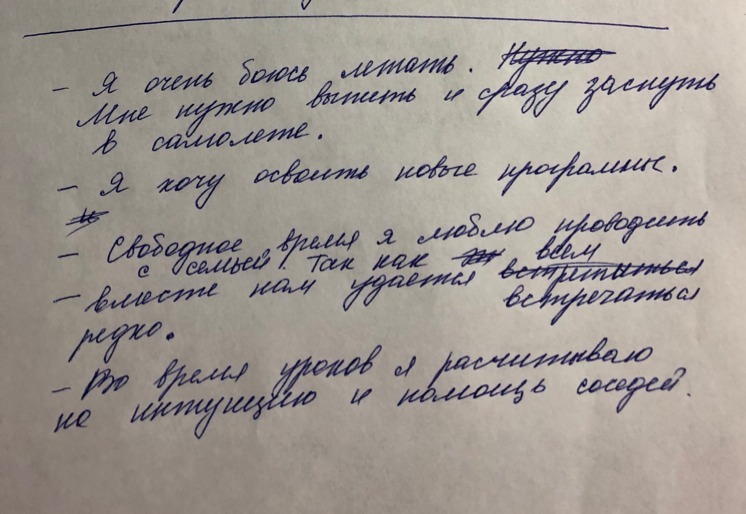 - Я очень боюсь летать. Нужно
Мне нужно выпить и сразу заснуть
в самолете.
- Я хочу освоить новые программы.
- Свободное время я люблю проводить
с семьей. Так как всем
- вместе нам удается встретиться
встречаться
редко.
- Во время уроков я расчитываю
на интуицию и помощь соседей.